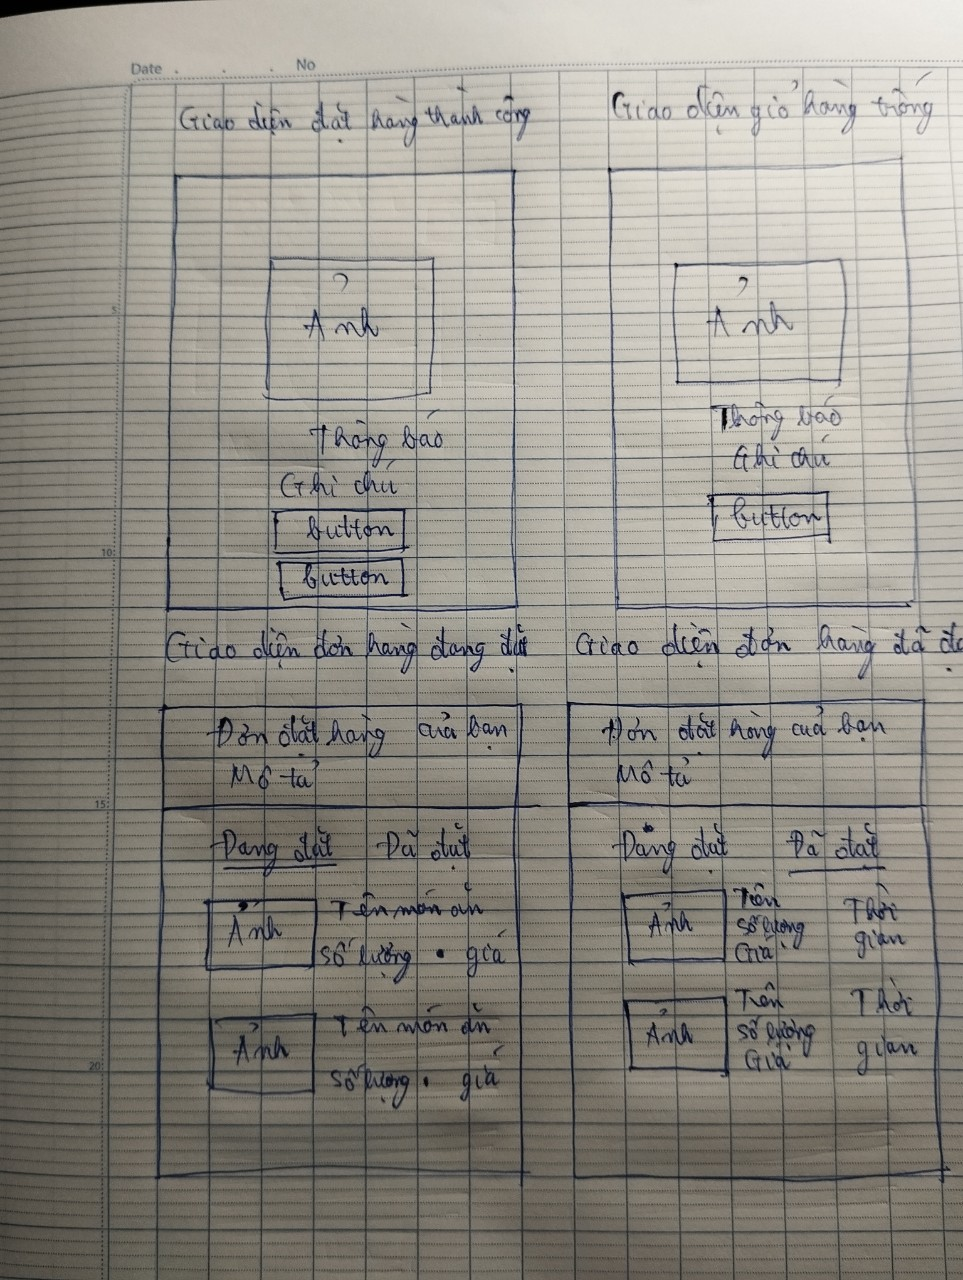 Date . . . No
Giao diện đặt hàng thành công
Ảnh
Thông báo
Ghi chú
button
button
Giao diện giỏ hàng trống
Ảnh
Thông báo
Ghi chú
button
Giao diện đơn hàng đang đặt
Đơn đặt hàng của bạn
Mô tả
Đang đặt Đã đặt
Ảnh
Tên món ăn
số lượng • giá
Ảnh
Tên món ăn
số lượng • giá
Giao diện đơn hàng đã
Đơn đặt hàng của bạn
Mô tả
Đang đặt Đã đặt
Ảnh
Tên
số lượng
Giá
Thời
gian
Ảnh
Tên
số lượng
Giá
Thời
gian
5
10
15
20